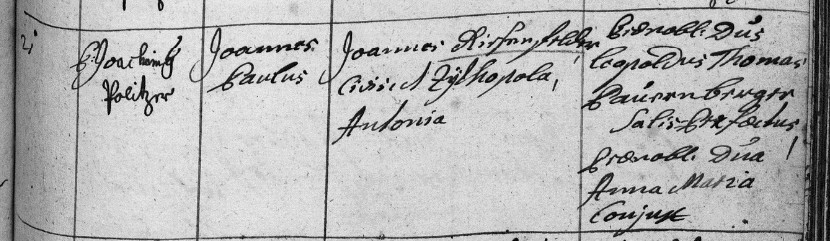 21
P: Joachimus
Politzer
Joannes
Paulus
Joannes Riesenfelder
Civis et Zythopola,
Antonia
Prænobl: Dūs
Leopoldus Thomas
Pauernberger
Salis Præfectus
Prænobl: Dūa
Anna Maria
Conjux